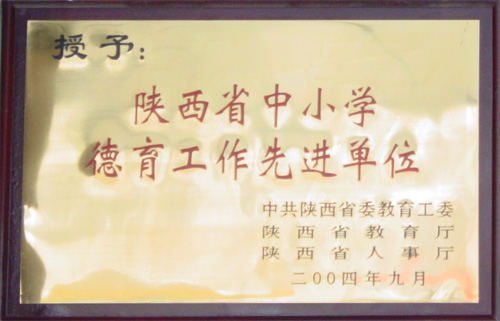 授予：
陕西省中小学
德育工作先进单位
中共陕西省委教育工委
陕西省教育厅
陕西省人事厅
二00四年九月